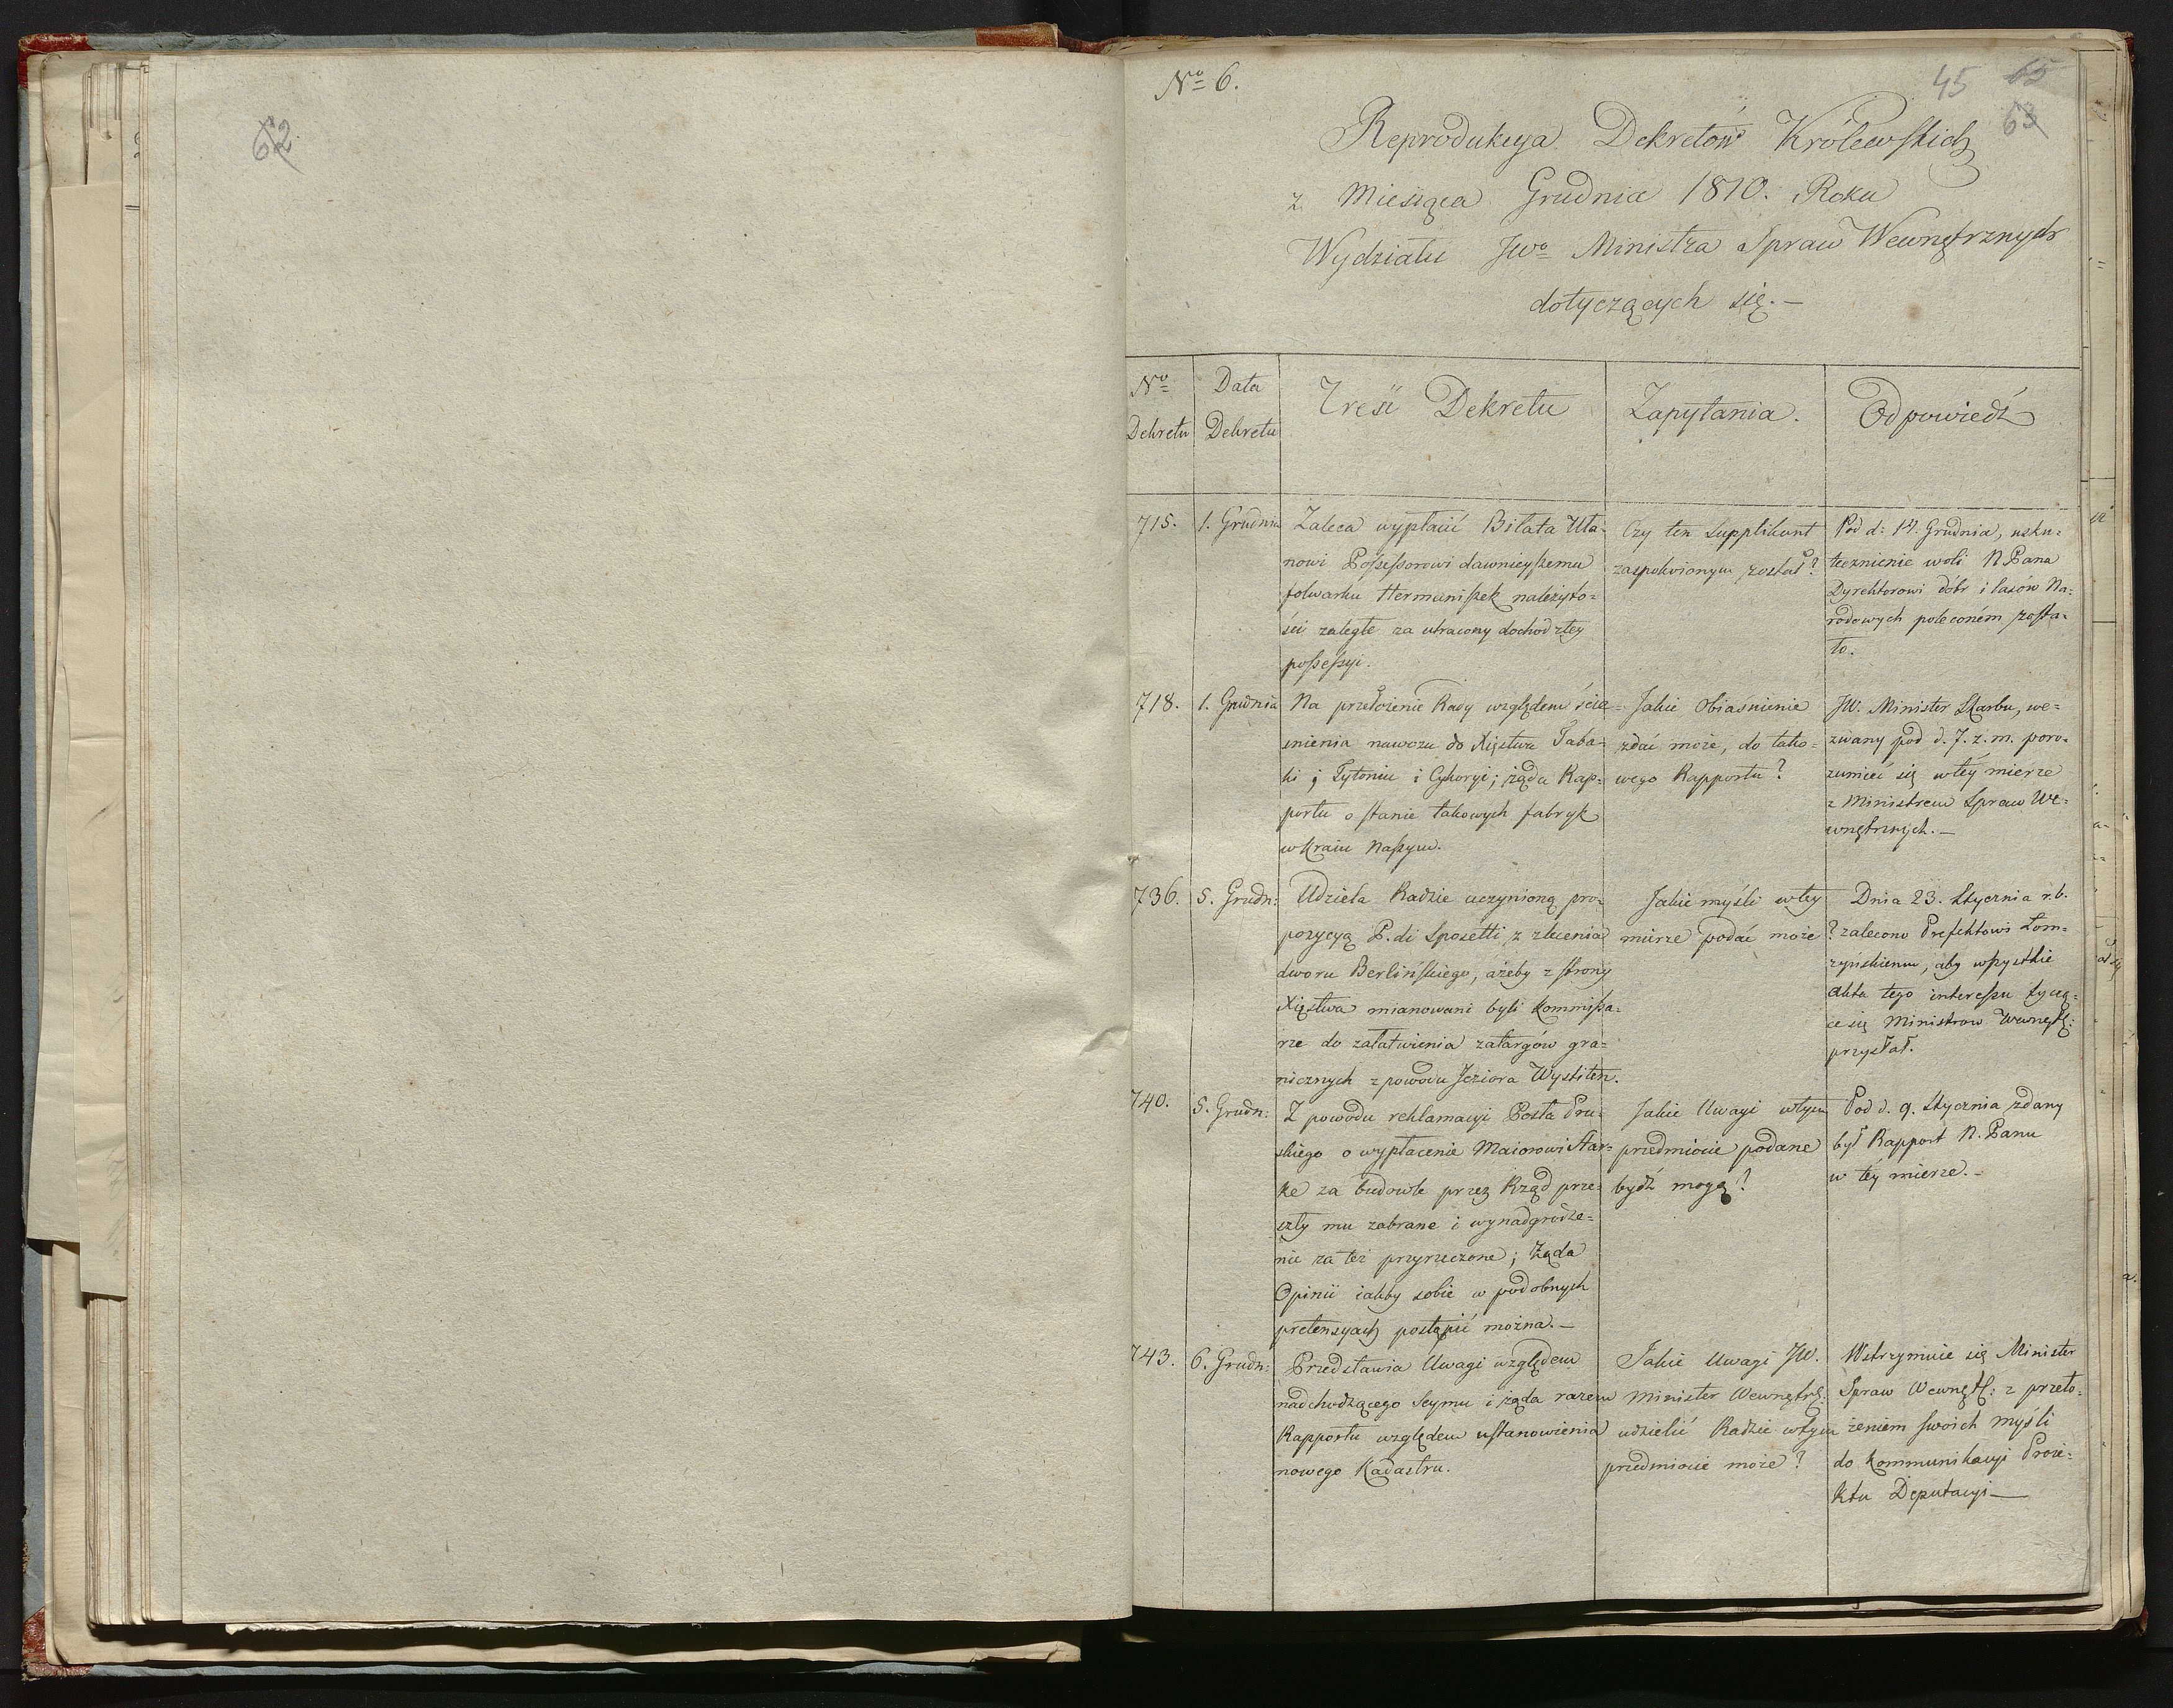 62
No 6.
45 65
63
Reprodukcya Dekretów Królewskich
z Miesiąca Grudnia 1810. Roku
Wydziału JWo Ministra Spraw Wewnętrznych
dotyczących się.—
No Dekretu
Data Dekretu
Treść Dekretu
Zapytania.
Odpowiedź
715.
1. Grudnia
Zaleca wypłacić Bilata Uła-
nowi Possessorowi dawnieyszemu
folwarku Hermaniszek należyto-
ści zaległe za utracony dochod z tey
possessyi.
Czy ten Supplikant
zaspokoionym został?
Pod d: 14. Grudnia, usku-
tecznienie woli N Pana
Dyrektorowi dóbr i lasów Na-
rodowych poleconém zosta-
ło.
718.
1. Grudnia
Na przełożenie Rady względem ście-
śnienia nawozu do Xięstwa Taba-
ki; Tytoniu i Cykoryi; żąda Rap-
portu o stanie takowych fabryk
w Kraiu Naszym.
Jakie Obiaśnienie
zdać może, do tako-
wego Rapportu?
JW. Minister Skarbu, we-
zwany pod d. 7. z. m. poro-
zumieć się w téy mierze
z Ministrem Spraw We-
wnętrznych.—
736.
5. Grudn:
Udziela Radzie uczynioną pro-
pozycyą P. di Sposetti, z zlecenia
dworu Berlińskiego, ażeby z strony
Xięstwa mianowani byli Kommissa-
rze do załatwienia zatargów gra-
nicznych z powodu Jeziora Wystiten.
Jakie myśli w tey
mierze podać może?
Dnia 23. Stycznia r. b.
zalecono Prefektowi Łom-
żyńskiemu, aby wszystkie
Akta tego interessu tyczą-
ce się Ministrow Wewnętr:
przysłał.
740.
5. Grudn:
Z powodu reklamacyi Posła Pru-
skiego o wypłacenie Maiorowi Star-
ke za budowle przez Rząd prze-
szły mu zabrane i wynadgrodze-
nie za też przyrzeczone; Żąda
Opinii iakby sobie w podobnych
pretensyach postąpić można.—
Jakie Uwagi w tym
przedmiocie podane
bydź mogą?
Pod d. 9. Stycznia zdany
był Rapport N. Panu
w téy mierze.—
743.
6. Grudn:
Przedstawia Uwagi względem
nadchodzącego Seymu i żąda razem
Rapportu względem ustanowienia
nowego Kadastru.
Jakie Uwagi JW.
Minister Wewnętrz:
udzielić Radzie w tym
przedmiocie może?
Wstrzymuie się Minister
Spraw Wewnętr: z przeło-
żeniem swoich myśli
do Kommunikacyi Proie-
ktu Deputacyi—